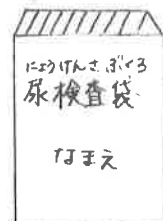 にょうけんさぶくろ
尿検査袋
なまえ